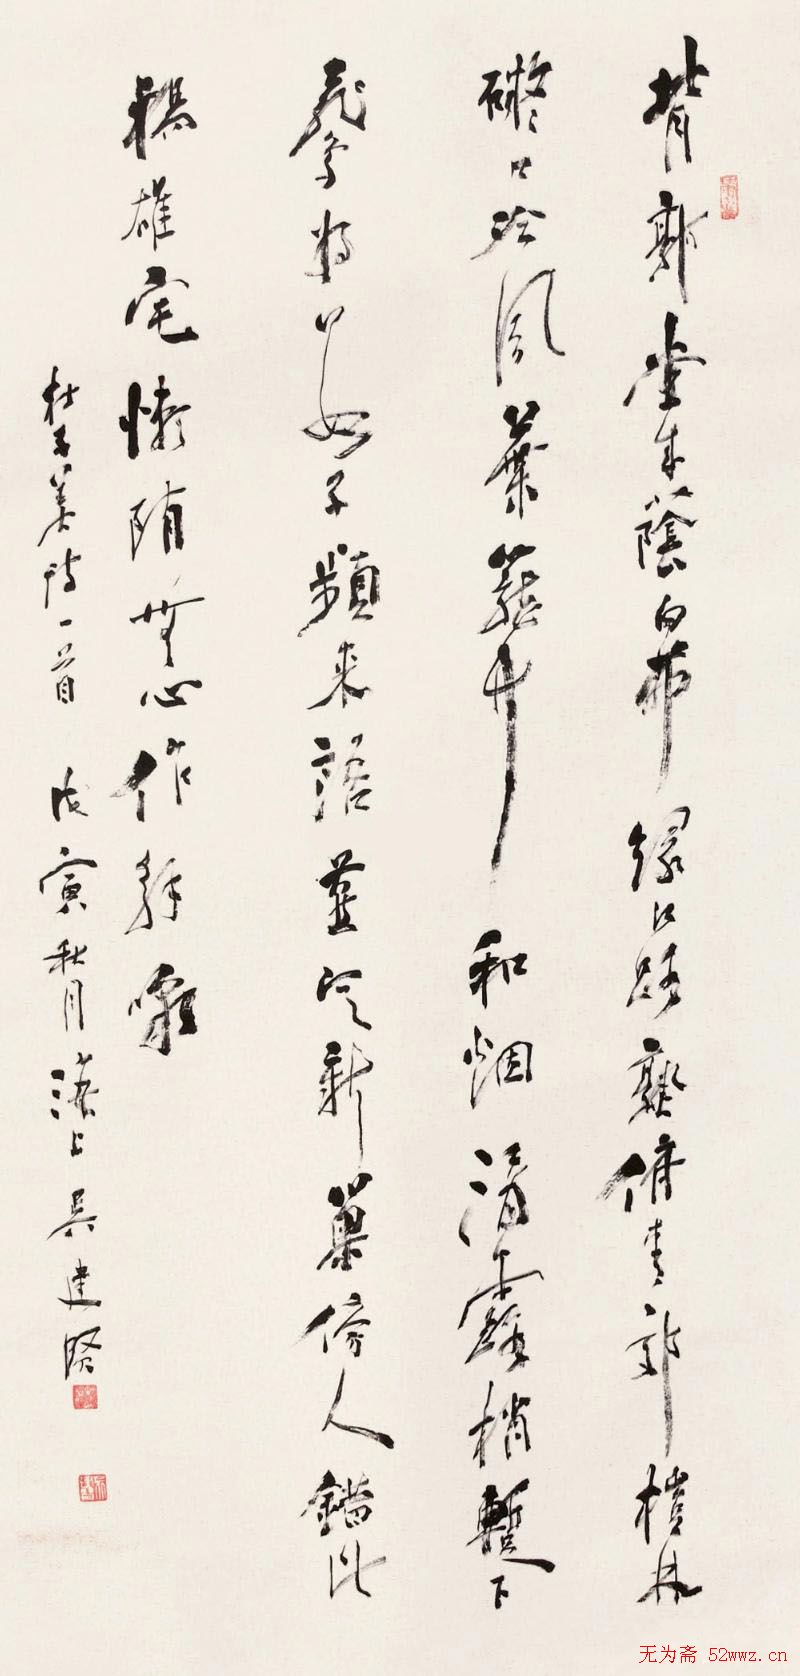 背郭堂成蔭白茅緣江路熟俯青郊榿林
礙日吟風葉籠竹和烟滴露梢暫下
飛烏將數子頻來語燕定新巢傍人錯比
楊雄宅懶惰無心作解嘲
杜子美詩一首 戊寅秋月滬上吳建賢
无为斋 52wwz.cn